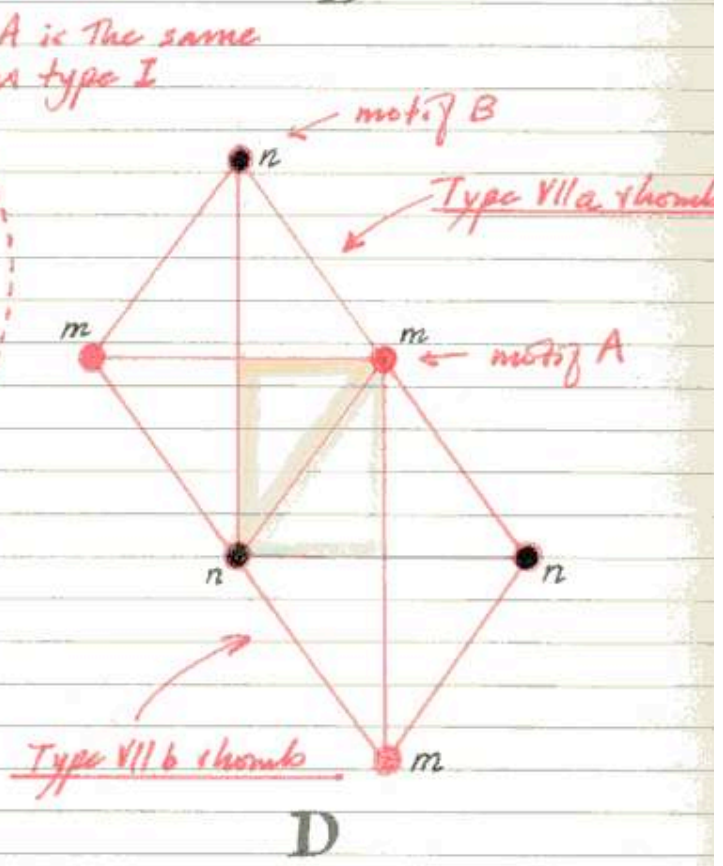 A is the same
type I
motif B
n
Type VIIa rhomb
m
m
motif A
n
n
Type VIIb rhomb
m
D